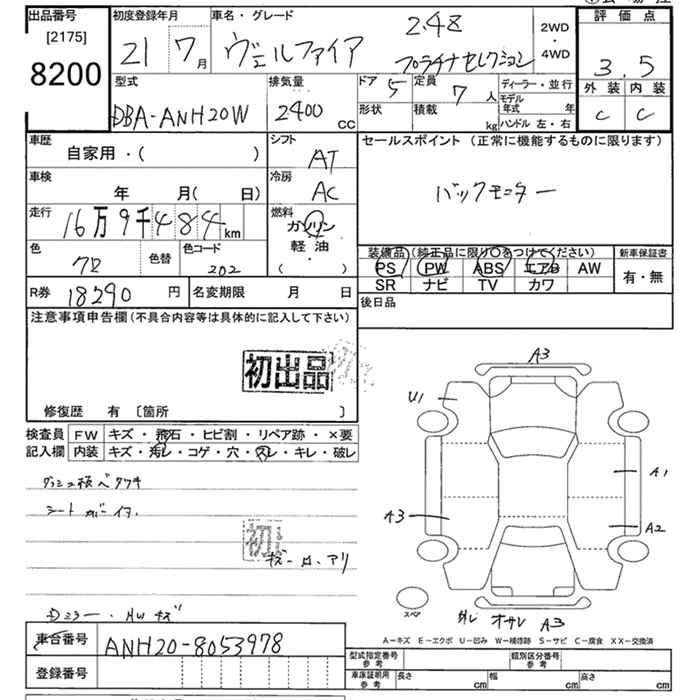 出品番号
[2175]
8200
初度登録年月
21 7月
車名・グレード
ヴェルファイア 2.4Z
プラチナセレクション
2WD
・
4WD
評価点
3.5
外装 内装
C C
型式
DBA-ANH20W
排気量
2400 cc
ドア 5
定員 7 人
ディーラー・並行
モデル年式 年
形状
積載 kg
ハンドル 左・右
車歴
自家用・( )
シフト
AT
セールスポイント (正常に機能するものに限ります)
バックモニター
車検
年 月( 日)
冷房
AC
走行
16万9千484km
燃料
ガソリン
軽・油
( ・ )
色
色替
色コード
202
装備品(純正品に限り〇をつけてください)
新車保証書
PS PW ABS エアB AW
SR ナビ TV カワ
有・無
R券 18290 円
名変期限 月 日
後日品
注意事項申告欄(不具合内容等は具体的に記入して下さい)
初出品
修復歴 有 〔箇所 〕
検査員
記入欄
FW キズ・飛石・ヒビ割・リペア跡・×要
内装 キズ・汚レ・コゲ・穴・スレ・キレ・破レ
初
Dミラー・HWキズ
A3
U1
A1
A3
A2
スペア
A3
A-キズ E-エクボ U-凹み W-補修跡 S-サビ C-腐食 XX-交換済
車台番号 ANH20-8053978
登録番号
型式指定番号 参考
類別区分番号 参考
車体証明用 参考
長さ cm
幅 cm
高さ cm